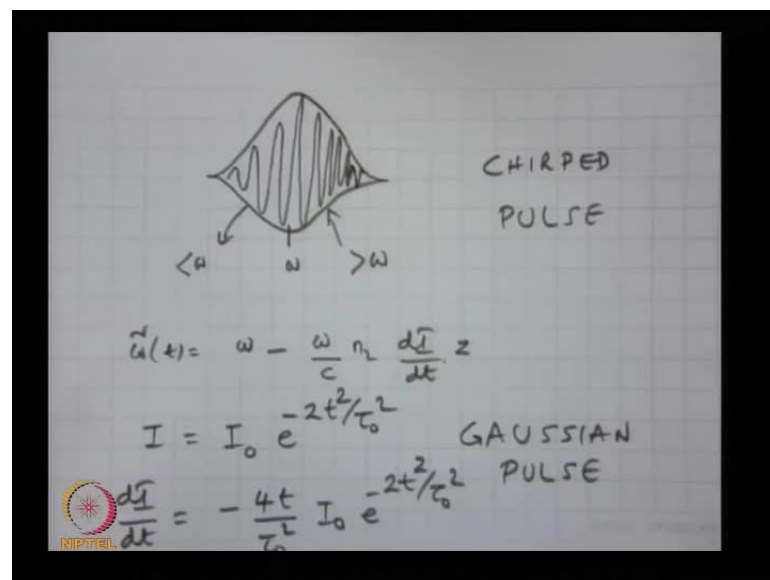 CHIRPED
PULSE
<ω ω >ω
ω̃(t) = ω − ω/c n₂ dI/dt . z
I = I₀ e^(-2t²/τ₀²)
GAUSSIAN
PULSE
dI/dt = − 4t/τ₀² I₀ e^(-2t²/τ₀²)
NPTEL